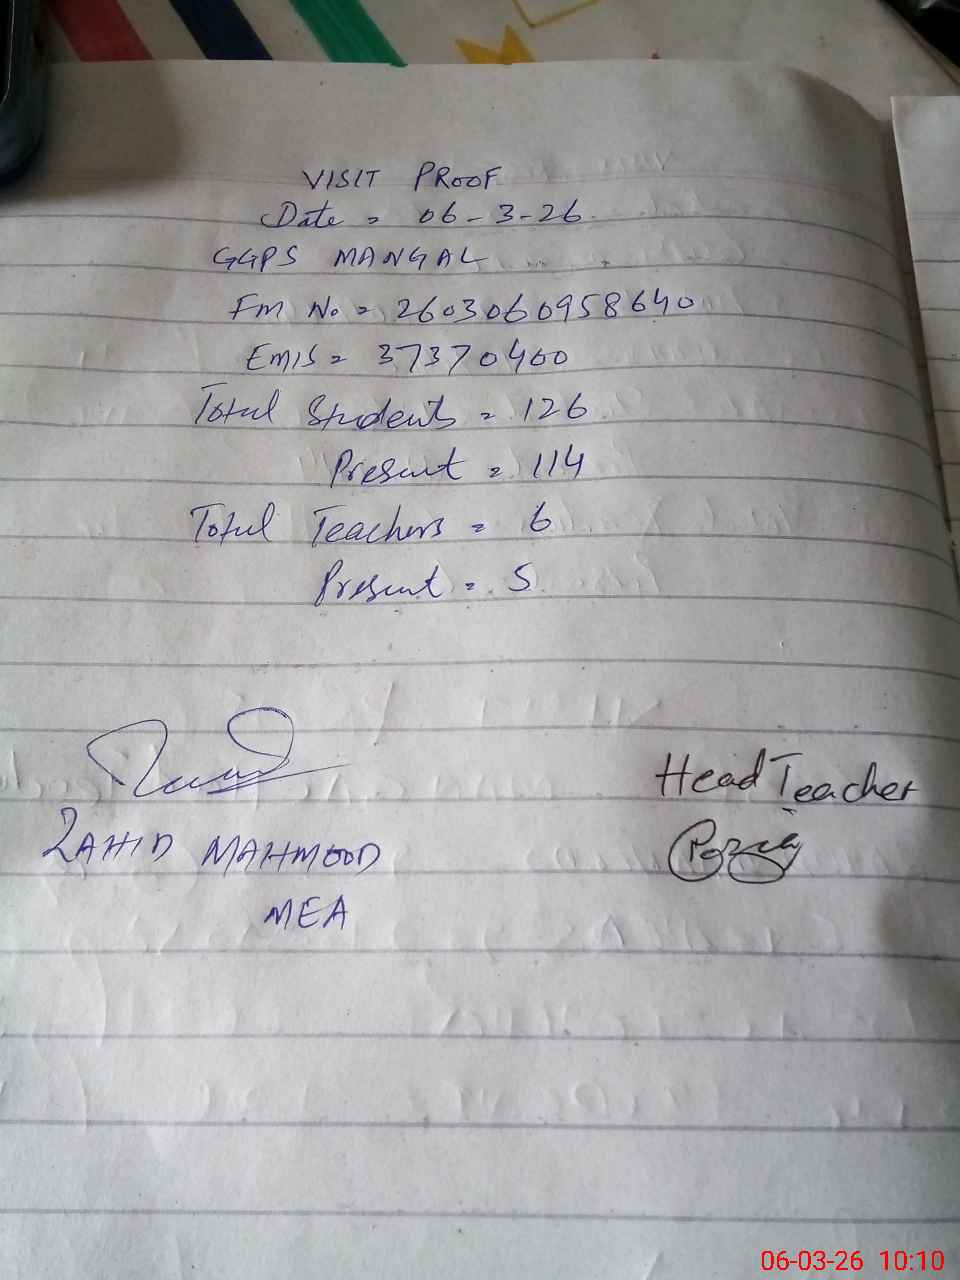 VISIT PROOF
Date = 06-3-26
GGPS MANGAL
FM No = 2603060958640
EMIS = 37370400
Total Students = 126
Present = 114
Total Teachers = 6
Present = 5
ZAHID MAHMOOD
MEA
Head Teacher
06-03-26 10:10